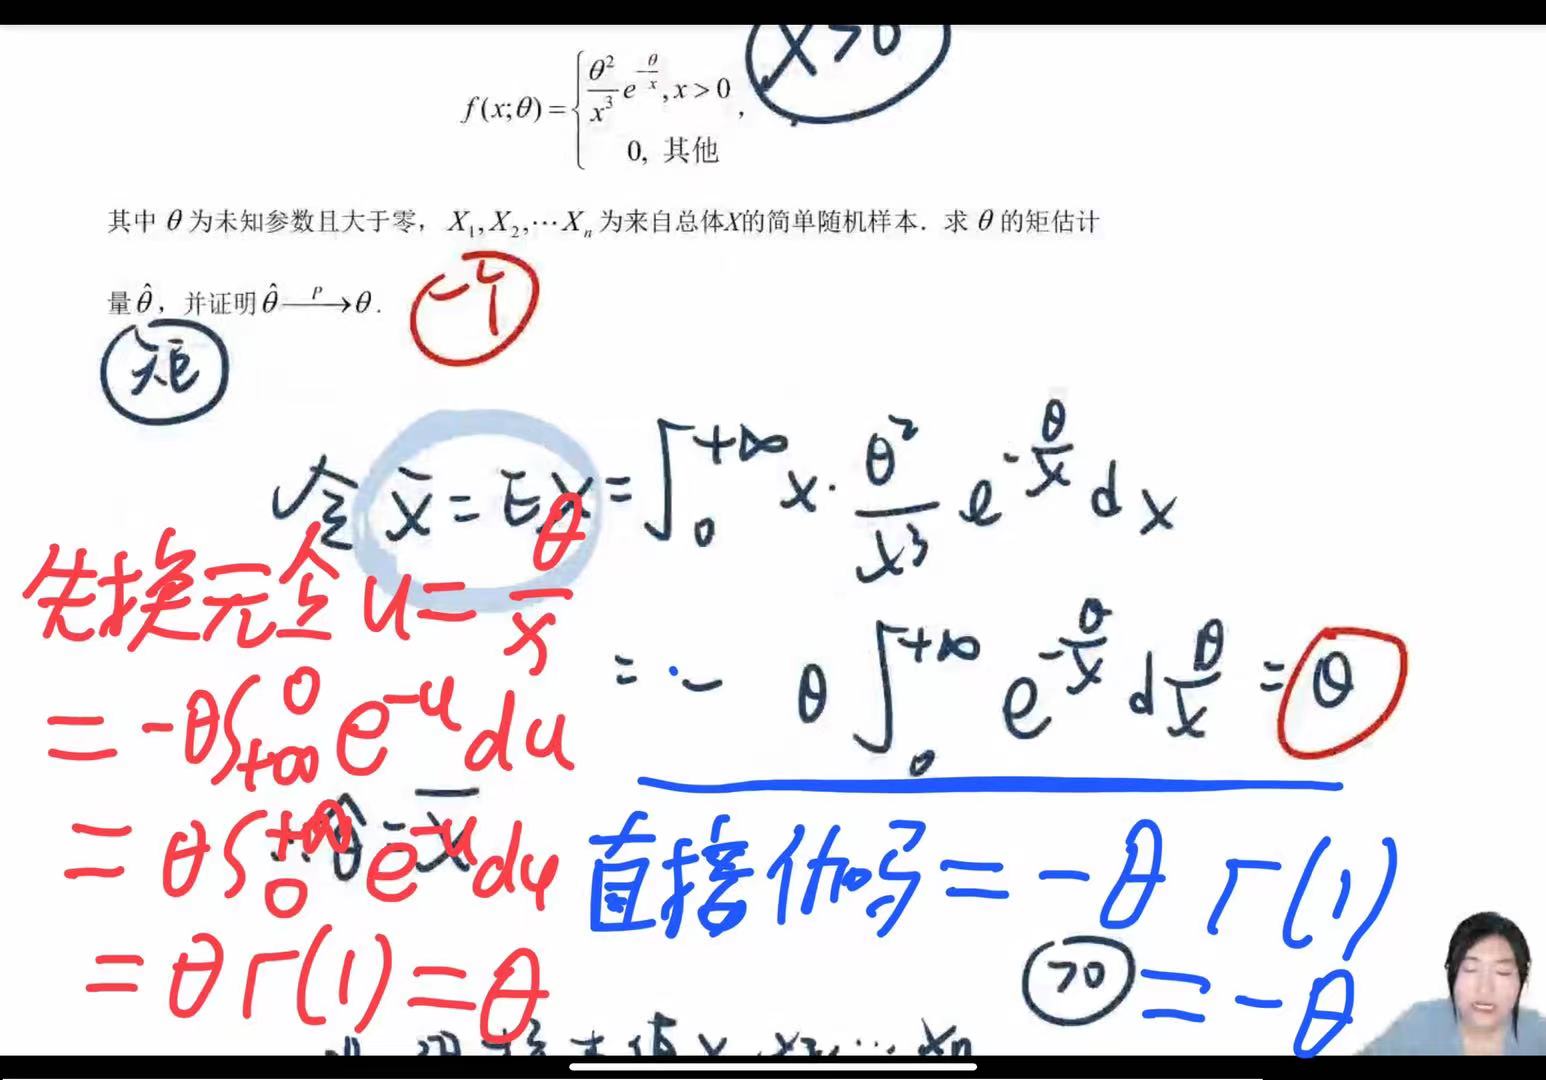 x>0
f(x;θ)={θ²/x³ e^{-θ/x}, x>0,
0, 其他
其中 θ 为未知参数且大于零, X₁,X₂,⋯Xₙ 为来自总体X的简单随机样本. 求 θ 的矩估计
量 θ̂, 并证明 θ̂ —P→ θ.
一个
矩
令 x̄ = EX = ∫₀^{+∞} x·θ²/x³ e^{-θ/x} dx
先换元令 u=θ/x
= - θ∫₀^{+∞} e^{-θ/x} d θ/x = θ
= -θ∫_{+∞}^{0} e^{-u} du
= θ∫₀^{+∞} e^{-u} du
θ̂ = X̄
直接伽玛 = -θ Γ(1)
= θΓ(1) = θ
>0
= -θ